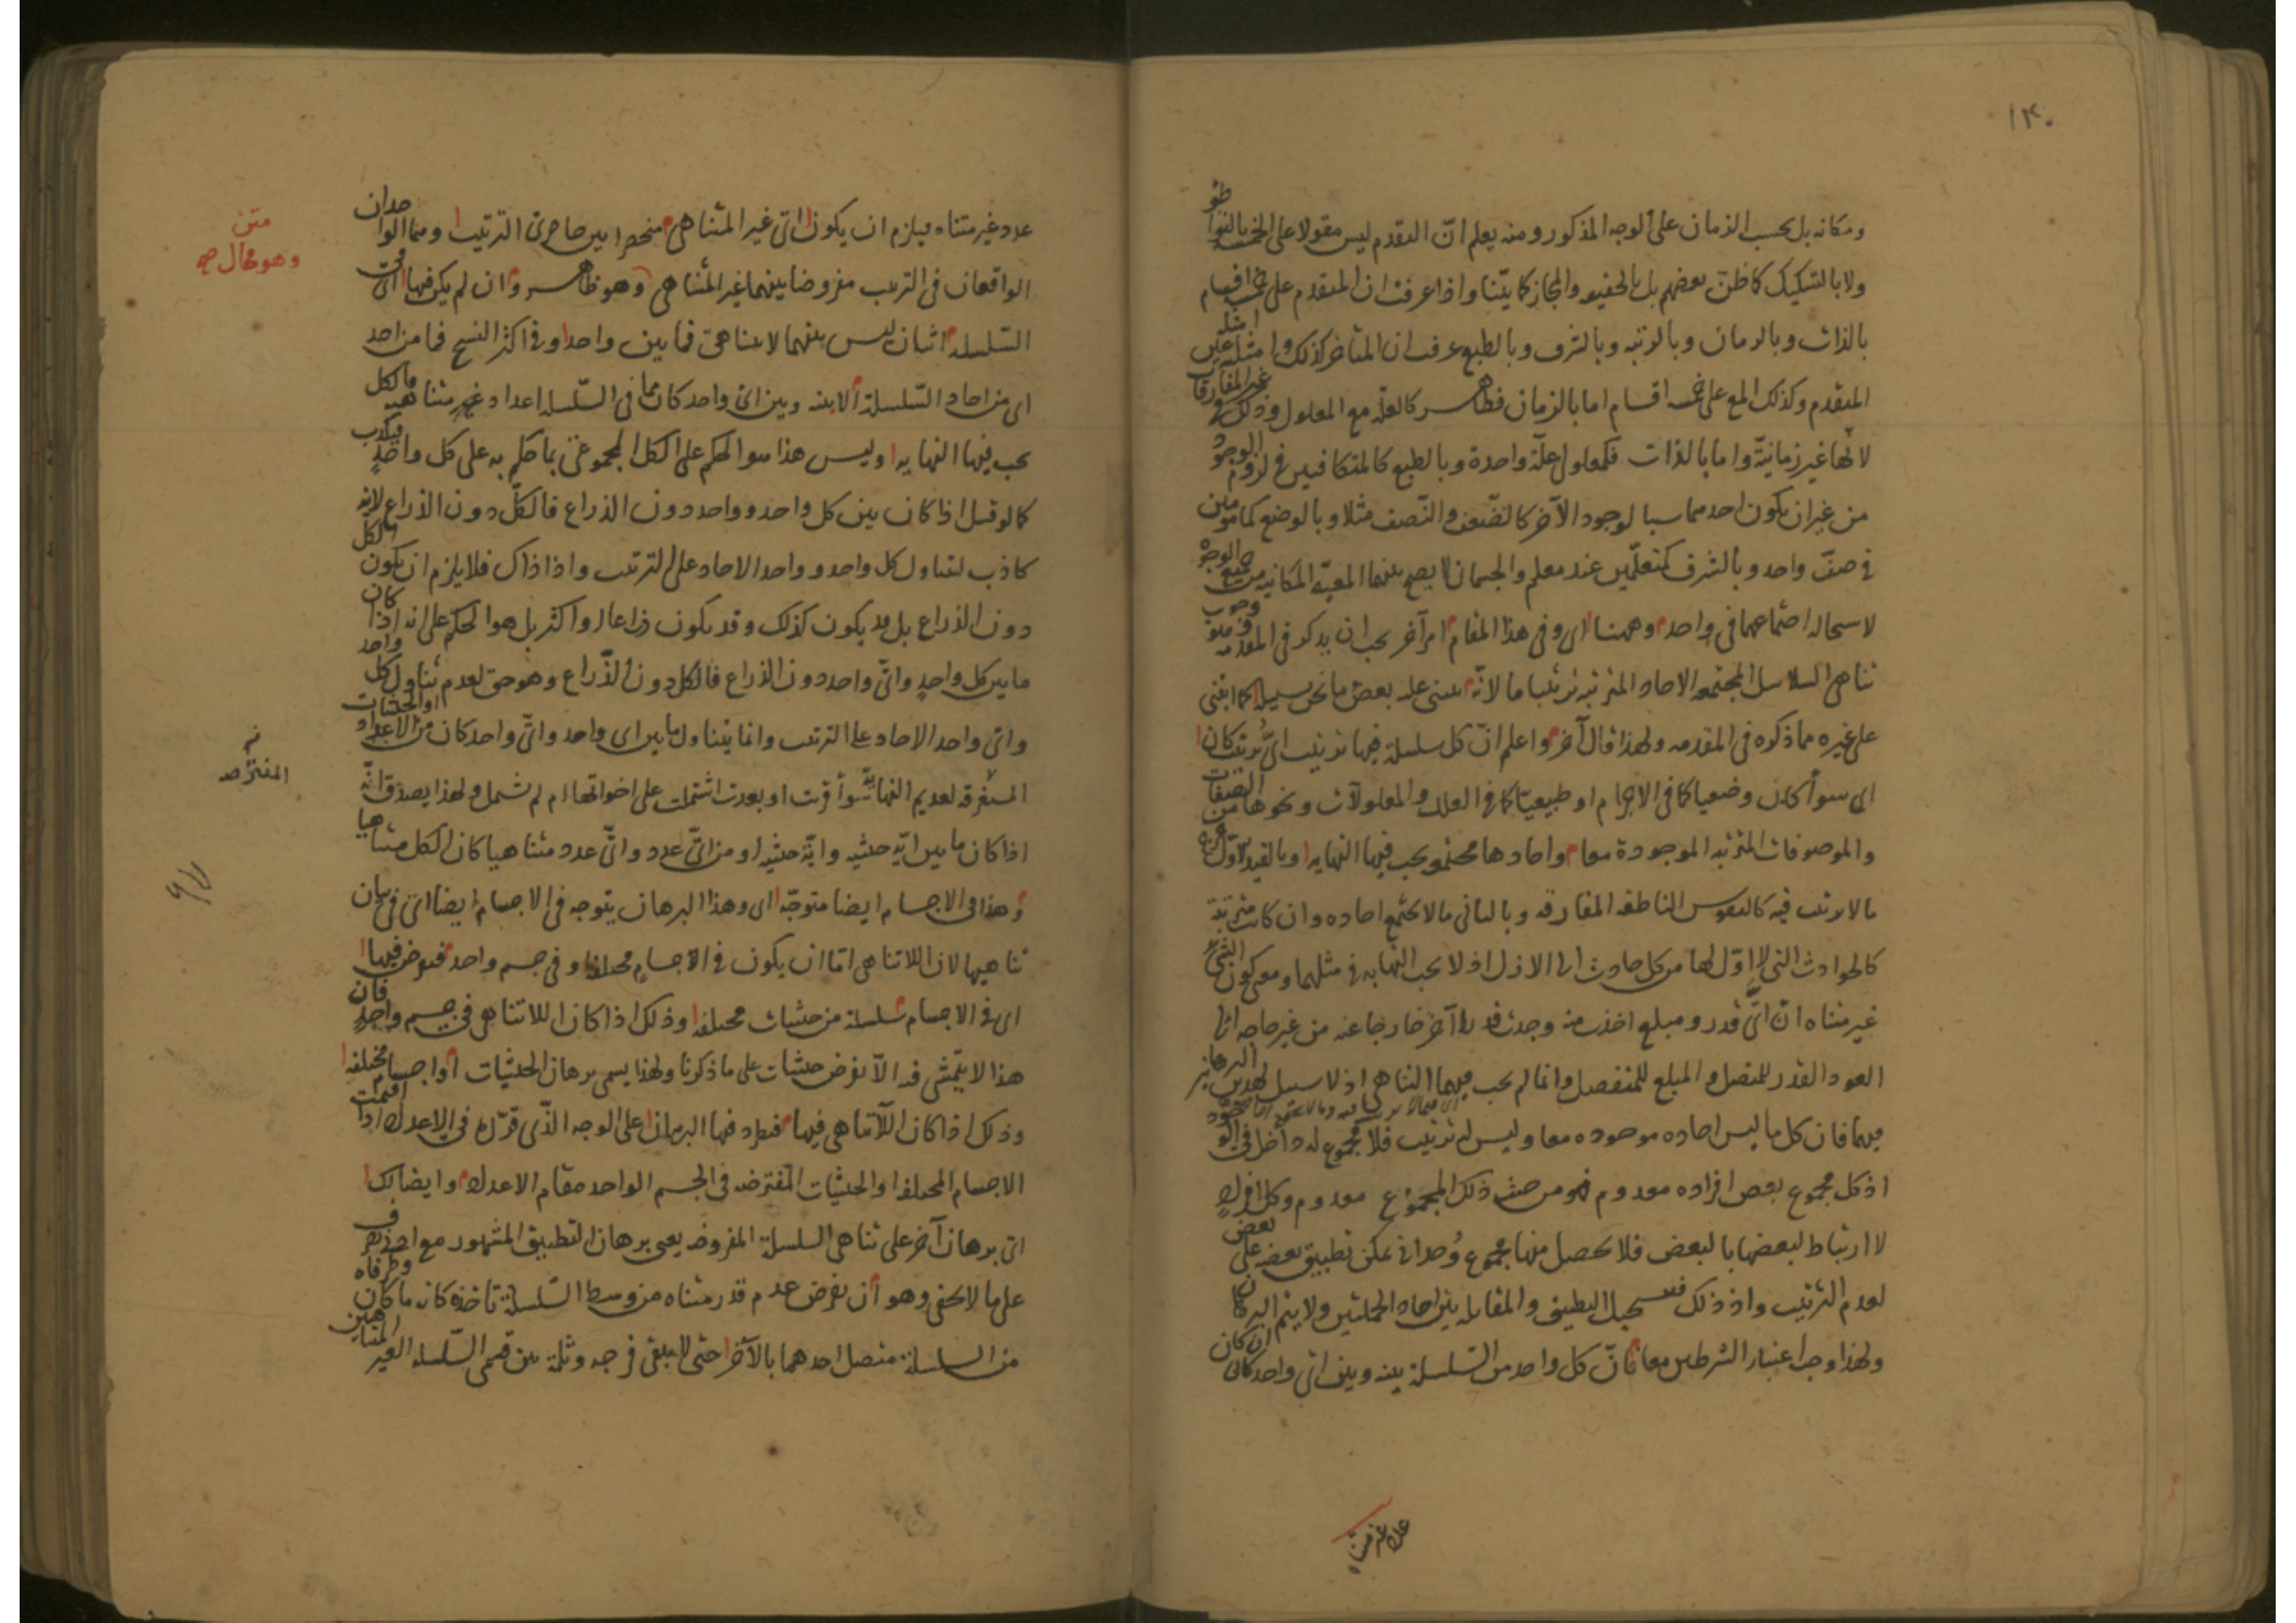 ١٣٠
ومكانه بل بحسب الزمان على الوجه المذكور ومنه يعلم انّ التقدم ليس مقولا على الخمسة بالتواطؤ
ولا بالتشكيك كما ظنّ بعضهم بل بالحقيقة والمجاز كما بيّنا واذا عرفت ان المتقدم على خمسة اقسام
بالذات وبالزمان وبالرتبة وبالشرف وبالطبع عرفت ان المتأخر كذلك وامثلته امثلة
المتقدم وكذلك المع على خمسة اقسام اما بالزمان فظاهر كالعلة مع المعلول وذلك في غير المفارقات
لانّها غير زمانيّة واما بالذات فكمعلولى علّة واحدة وبالطبع كالمتكافيين في لزوم الوجود
من غير ان يكون احدهما سببا لوجود الآخر كالضّعف والنّصف مثلا وبالوضع كمأمومين
في صفّ واحد وبالشرف كمتعلّمين عند معلم والجسمان لا يصح بينهما المعيّة المكانية من جميع الوجوه
لاستحالة اجتماعهما في واحد وههنا اى وفى هذا المقام امر آخر يجب ان يذكر في المقدمة وهو وجوب
تناهى السلاسل المجتمعة الاحاد المترتبة ترتيبا ما لانّه يبتنى عليه بعض ما نحن بسبيله كما ابتنى
على غيره مما ذكره فى المقدمة ولهذا قال آخر واعلم انّ كل سلسلة فيها ترتيب اىّ ترتيب كان
اى سواء كان وضعيا كما فى الاجرام او طبيعيّا كما فى العلل والمعلولات ونحوها من الصفات
والموصوفات المترتبة الموجودة معا وآحادها مجتمعة يجب فيها النهاية وبالقيد الاوّل
ما لا ترتب فيه كالنفوس الناطقة المفارقة وبالثانى ما لا يجتمع احاده وان كانت مترتبة
كالحوادث التى لا اوّل لها من كل حادث الى الازل اذ لا يجب النهاية في مثلهما ومعنى كون الشئ
غير متناه انّ اىّ قدر ومبلغ اخذت منه وجدت قدرا آخر خارجا عنه من غير حاجة الى
العود القدر للمتصل والمبلغ للمنفصل وانما لم يجب فيهما التناهى اذ لا سبيل لهذين البرهانين
فيهما فان كل ما ليس احاده موجودة معا وليس له ترتيب فلا مجموع له داخل في الوجود
اذ كل مجموع بعض افراده معدوم فهو من حيث ذلك المجموع معدوم وكل افراد
لا ارتباط لبعضها بالبعض فلا يحصل منها مجموع وُحدانى يمكن تطبيق بعضه على بعض
لعدم الترتيب واذ ذلك فيستحيل التطبيق والمقابلة بين احاد الجملتين ولا يتم البرهان
ولهذا وجب اعتبار الشرطين معا فانّ كل واحد من السّلسلة بينه وبين اىّ واحد كان ان كان
عدد غير متناه
عدد غير متناه فيلزم ان يكون اى غير المتناهى منحصرا بين حاصرى الترتيب وهما الواحدان
الواقعان فى الترتيب مفروضا بينهما غير المتناهى وهو ظاهر وان لم يكن فيها اى في
السّلسلة اثنان ليس بينهما لا يتناهى فما بين واحد وفى اكثر النسخ فما من احد
اى من احاد السّلسلة الا بينه وبين اى واحد كان مما فى السّلسلة اعداد غير متناهية فالكل
يجب فيها النهاية وليس هذا هو الحكم على الكل المجموعى بما حكم به على كل واحدٍ فيكذب
كما لو قيل اذا كان بين كل واحد وواحد دون الذراع فالكلّ دون الذراع لانه
كاذب لتناول كل واحد وواحد الاحاد على الترتيب واذا ذاك فلا يلزم ان يكون الكل
دون الذراع بل قد يكون كذلك وقد يكون ذراعا او اكثر بل هو الحكم على انه اذا كان
ما بين كل واحدٍ واىّ واحد دون الذراع فالكل دون الذّراع وهو حق لعدم تناول كل واحد
واىّ واحد الاحاد على الترتيب وانما يتناول ما بين اى واحد واىّ واحد كان من الاعداد او الحيثيات
المستغرقة لعديم النهاية سواء قربت او بعدت اشتملت على اخواتها ام لم تشمل ولهذا يصدق انّه
اذا كان ما بين ايّة حيثية وايّة حيثية او من اىّ عدد واىّ عدد متناهيا كان الكل متناهيا
وهذا فى الاجسام ايضا متوجّه اى وهذا البرهان يتوجه فى الاجسام ايضا اى فى بيان
تناهيها لان اللاتناهى امّا ان يكون في الاجسام مختلفة او فى جسم واحد فنفرض فيها
اى في الاجسام سلسلة من حيثيات مختلفة وذلك اذا كان اللاتناهى في جسم واحدٍ فان
هذا لا يتمّشى فيه الّا بفرض حيثيات على ما ذكرنا ولهذا يسمى برهان الحيثيّات او اجسام مختلفة
وذلك اذا كان اللّاتناهى فيها فيطرد فيها البرهان على الوجه الذّى قرّر فى الاعداد اذا اقيمت
الاجسام المختلفة او الحيثيات المفترضة فى الجسم الواحد مقام الاعداد وايضا لك
اى برهان آخر على تناهى السلسلة المفروضة يعنى برهان التطبيق المشهور مع ادنى تصرف
على ما لا يخفى وهو ان نفرض عدم قدر متناه من وسط السّلسلة تأخذه كانه ما كان وطرفاه
من السلسلة متصل احدهما بالآخر حتى لا يبقى فرجة وثلمة بين قسمى السّلسلة الغير المتناهيين
متن
وهو محال صح
المفترضة